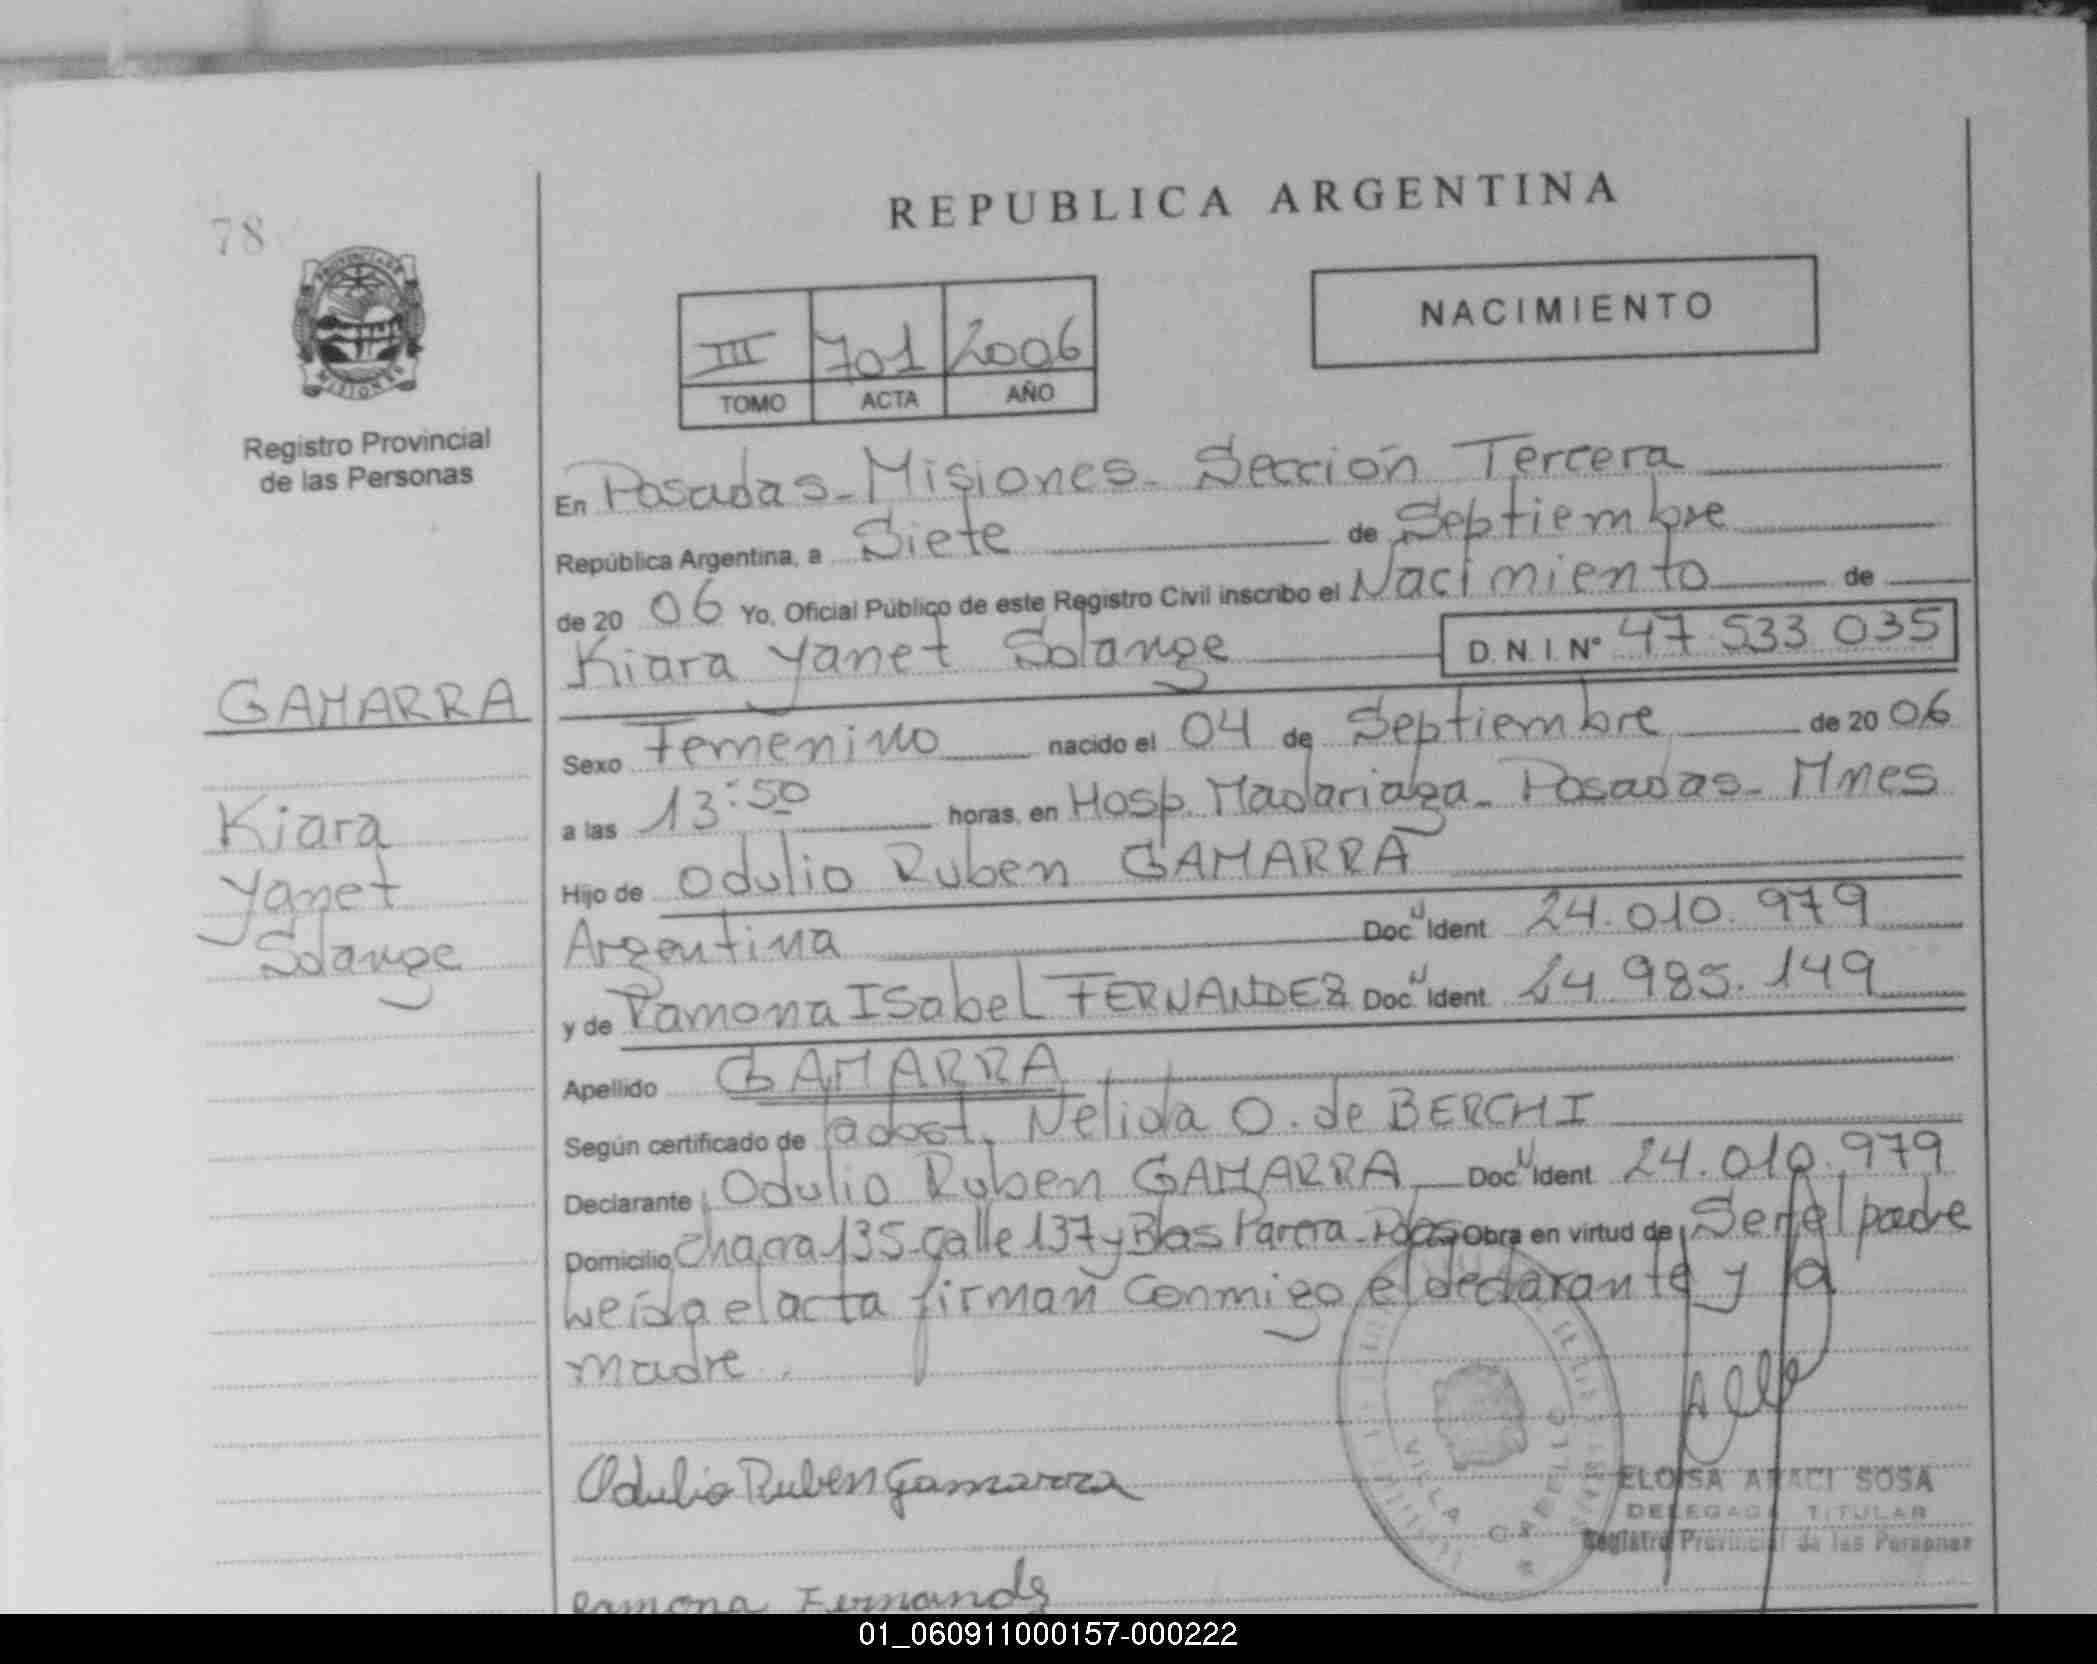 REPUBLICA ARGENTINA
78
NACIMIENTO
III 701 2006
TOMO ACTA AÑO
PROVINCIA DE
MISIONES
Registro Provincial
de las Personas
En Posadas - Misiones - Sección Tercera
República Argentina, a Siete de Septiembre
de 20 06 Yo, Oficial Público de este Registro Civil inscribo el Nacimiento de
Kiara Yanet Solange D.N.I. Nº 47.533.035
GAMARRA
Kiara
Yanet
Solange
Sexo Femenino nacido el 04 de Septiembre de 20 06
a las 13:50 horas, en Hosp. Madariaga - Posadas - Mnes
Hijo de Odulio Ruben GAMARRA
Argentina Doc. Ident 24.010.979
y de Ramona ISabel FERNANDEZ Doc. Ident 24.985.149
Apellido GAMARRA
Según certificado de obst. Nelida O. de BERCHI
Declarante Odulio Ruben GAMARRA Doc. Ident 24.010.979
Domicilio Chacra 135 - Calle 137 y Blas Parera - Pdas Obra en virtud de Ser el padre
Leída el acta firman conmigo el declarante y la
madre.
Odulio Ruben Gamarra
VILLA CABELLO
ELOISA ARACI SOSA
DELEGADA TITULAR
Registro Provincial de las Personas
Ramona Fernandz
01_060911000157-000222